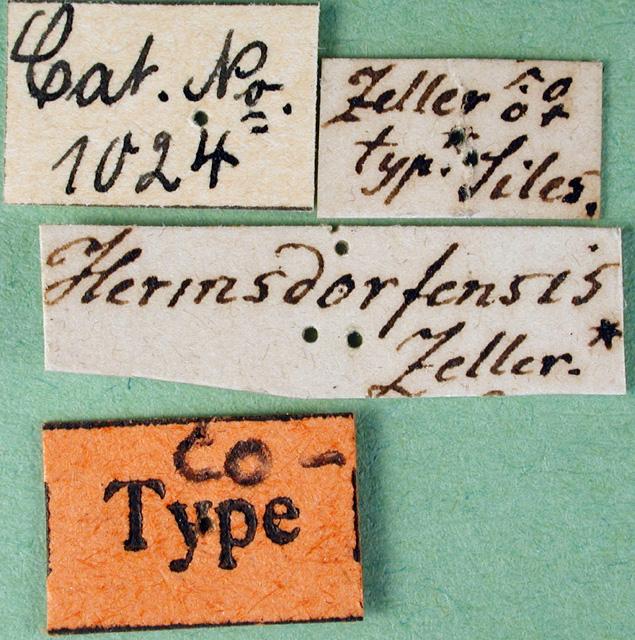 Cat. No.
1024
Zeller
typ. Siles.
Hermsdorfensis
Zeller. *
Co -
Type